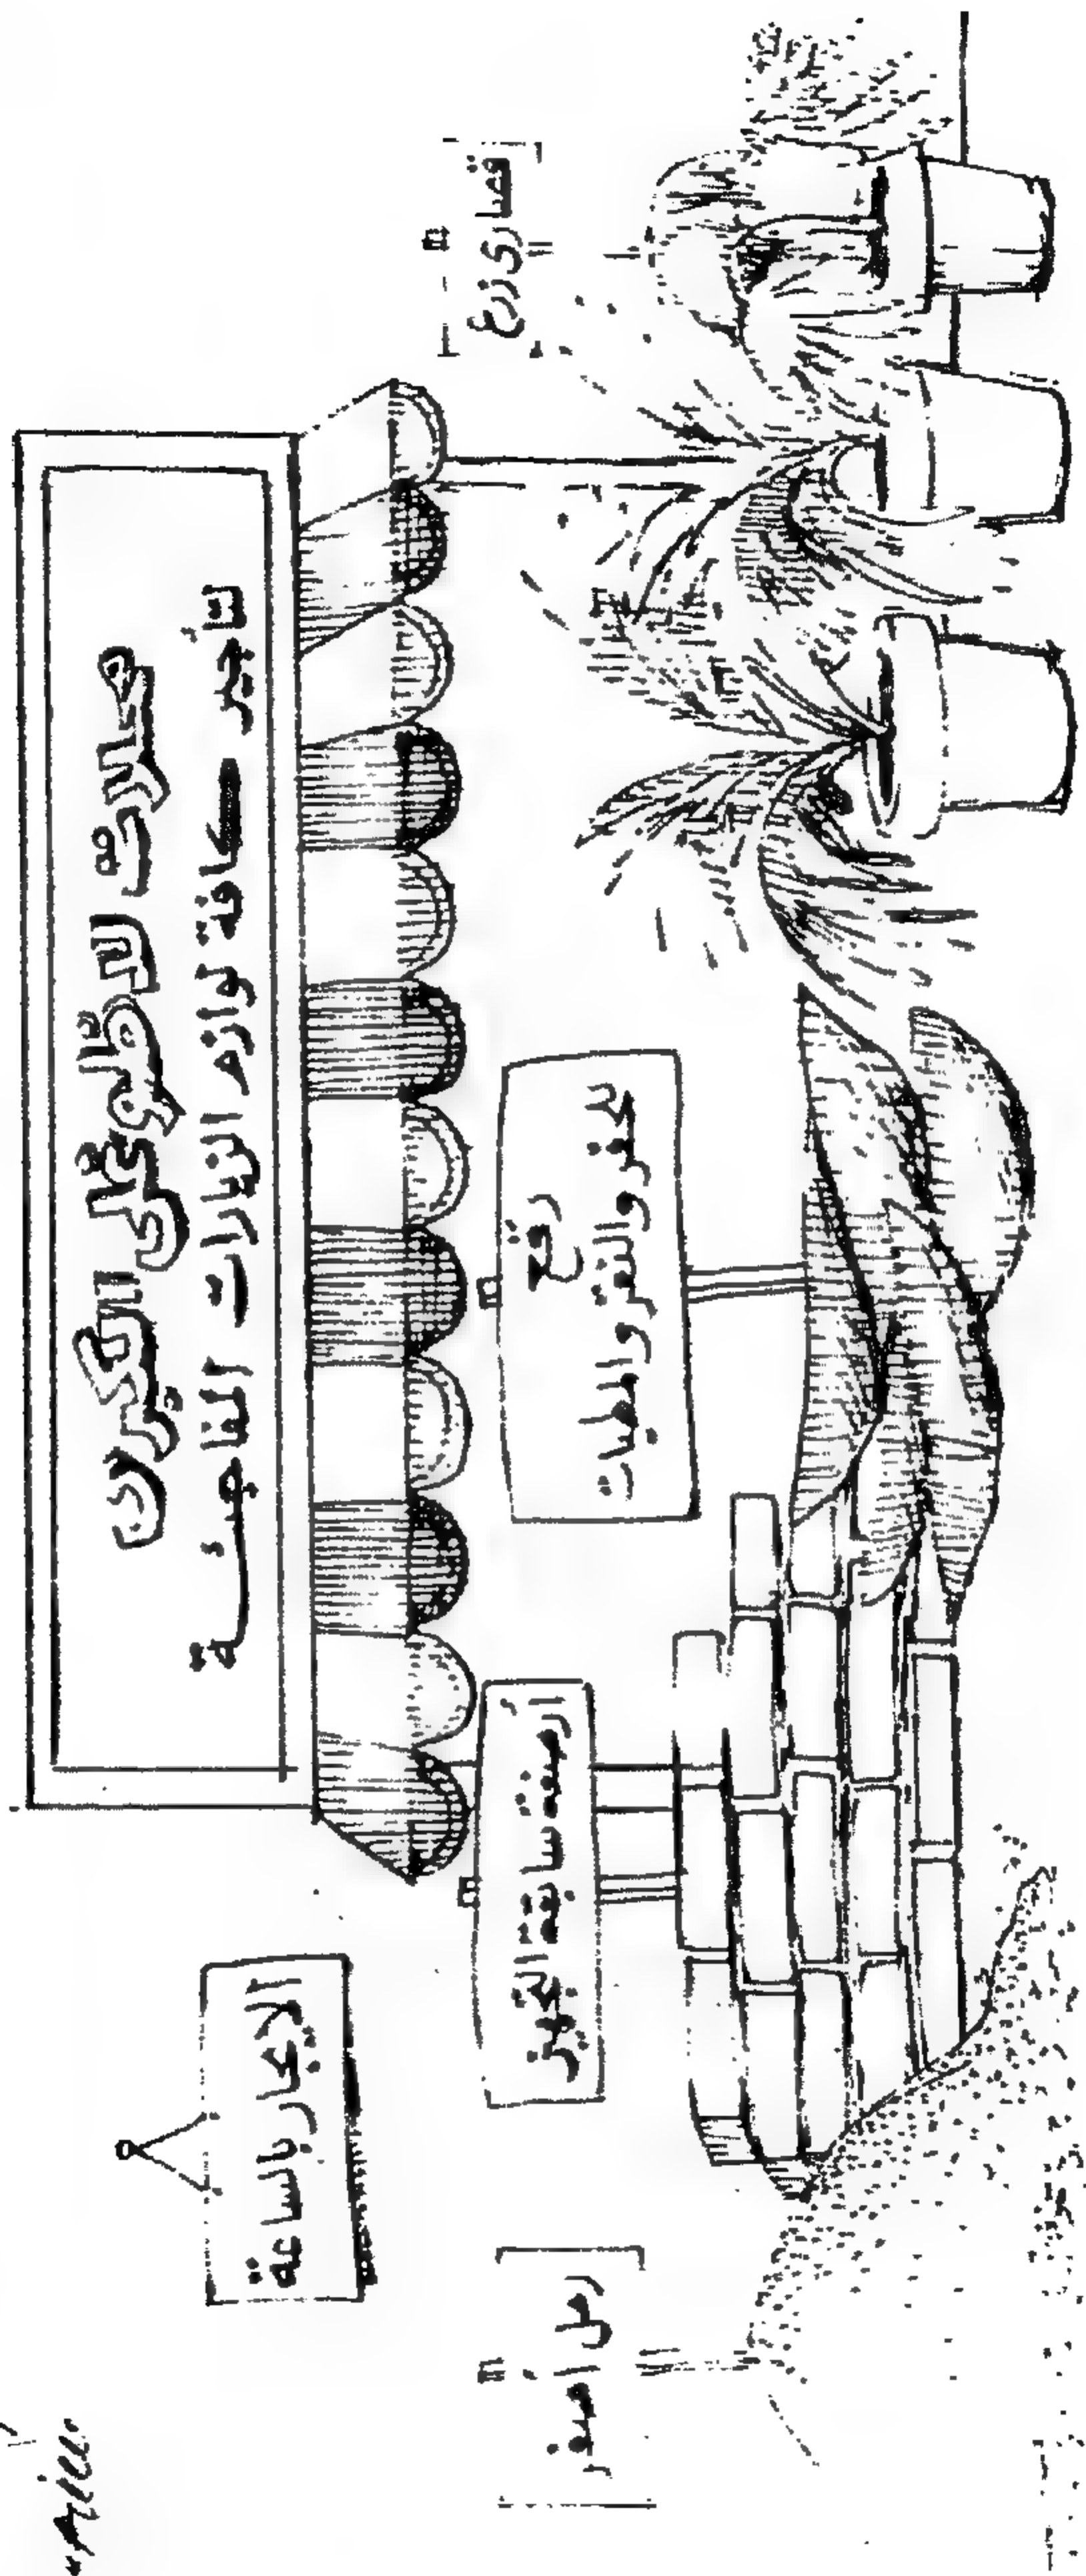 محلات لاظوغلى الكبرى
لتأجير كافة لوازم الزيارات المفاجئة
قصارى زرع
رقع
للحفر والنقر والمطبات
أرصفة سابقة التجهيز
الايجار بالساعة
رمل أصفر